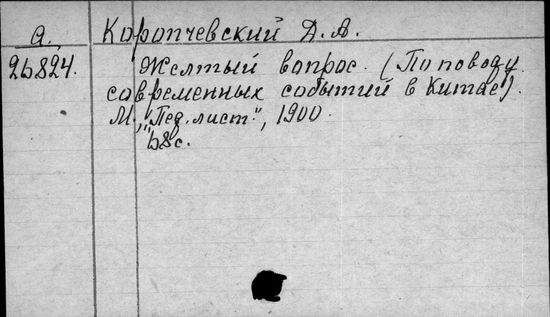 а. Коропчевский Д.А.
26824. Желтый вопрос. (По поводу
современных событий в Китае).
М., "Пед. лист.", 1900.
58 с.